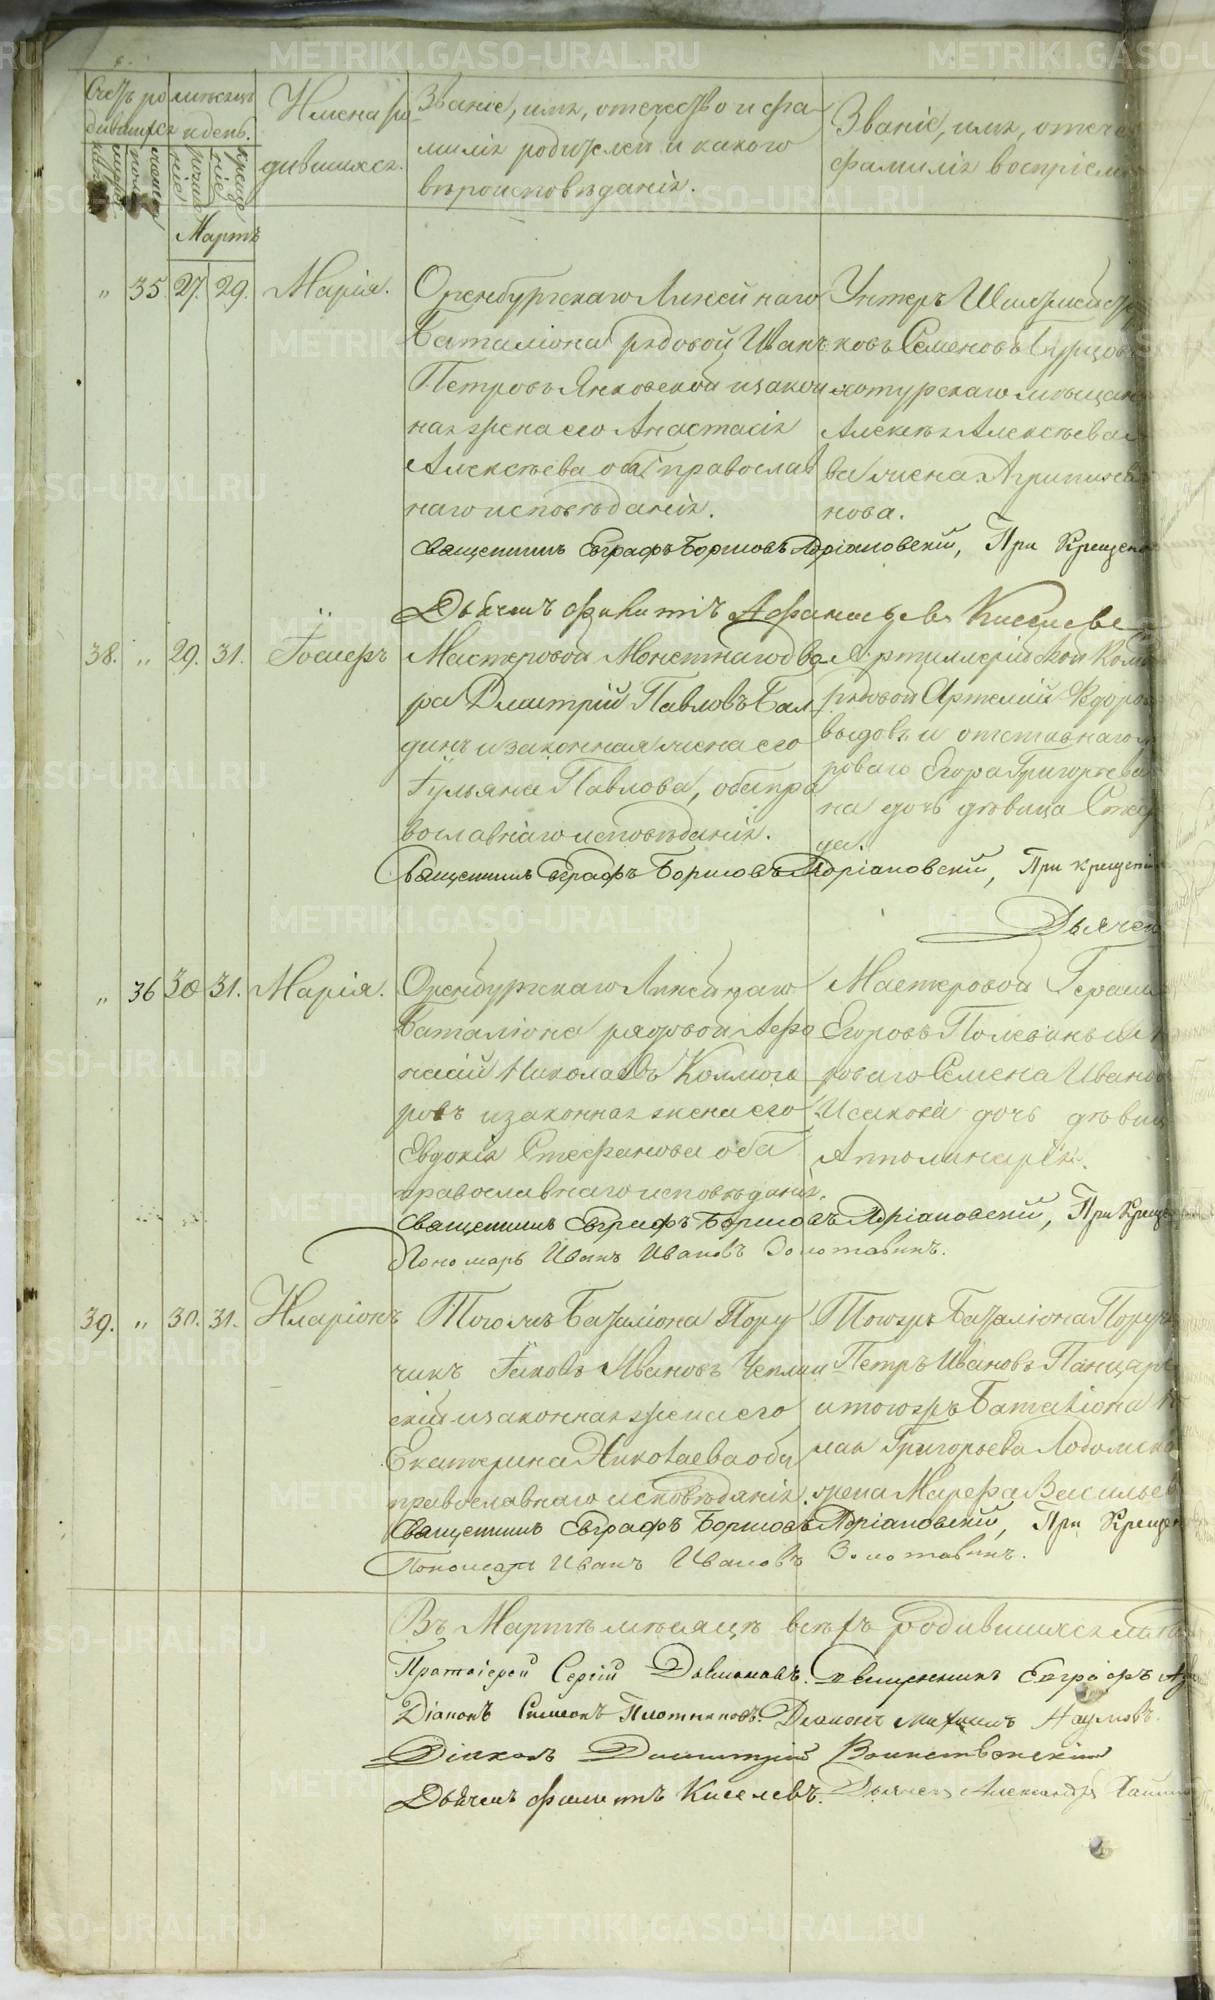 Счетъ ро дившихся
мѣсяцъ и день.
Имена ро дившихся.
Званіе, имя, отечество и фа
милія родителей и какого
вѣроисповѣданія.
Званіе, имя, отече
фамилія воспріем
Мартъ
„ 35. 27. 29. Марія.
Оренбургскаго Линейнаго
Баталіона рядовой Иванъ
Петровъ Янковской и закон
ная жена его Анастасія
Алексѣева оба православ
наго исповѣданія.
Унтеръ
ковъ Семеновъ
хотурскаго мѣщан
Алексѣя Алексѣева
ва жена Агрипин
нова.
Священникъ Евграфъ Борисовъ Адріановскій, При Крещен
Дьячекъ Афанасьевъ Киселевъ
38. „ 29. 31. Іосифъ
Мастеровой Монетнаго дво
ра Дмитрій Павловъ Бал
динъ и законная жена его
Іульяна Павлова, оба пра
вославнаго исповѣданія.
Артиллерійской Ком
рядовой Артемій Ѳдоро
выдовъ и отставнаго
роваго Егора Григорьева
на дочь дѣвица Сте
да.
Священникъ Евграфъ Борисовъ Адріановскій, При крещеніи
Дьячек
„ 36 30 31. Марія.
Оренбургскаго Линейнаго
Баталіона рядовой Афо
насій Николаевъ Колмого
ровъ и законная жена его
Евдокія Стефанова оба
православнаго исповѣданія.
Мастеровой Гераси
Егоровъ
роваго Семена Иванов
Исакова дочь дѣвиц
Апполинарія.
Священникъ Евграфъ Борисовъ Адріановскій, При Креще
Пономарь Иванъ Ивановъ Золотавинъ.
39. „ 30. 31. Иларіонъ
Тогожъ Баталіона Пору
чикъ Іаковъ Ивановъ Чеплин
скій и законная жена его
Екатерина Николаева оба
православнаго исповѣданія.
Тогожъ Баталіона Поруч
Петръ Ивановъ Панцар
и тогожъ Баталіона
Григорьева Лодомск
жена Марефа Васильев
Священникъ Евграфъ Борисовъ Адріановскій, При Креще
Пономарь Иванъ Ивановъ Золотавинъ.
Въ Мартѣ мѣсяцѣ всѣхъ родившихся
Протоіерей Сергій Священникъ Евграфъ
Діаконъ Симеонъ Плотниковъ. Діаконъ Михаилъ Наумовъ.
Діаконъ Димитрій Воинственскій
Дьячекъ Киселевъ. Дьячекъ Александръ
METRIKI.GASO-URAL.RU